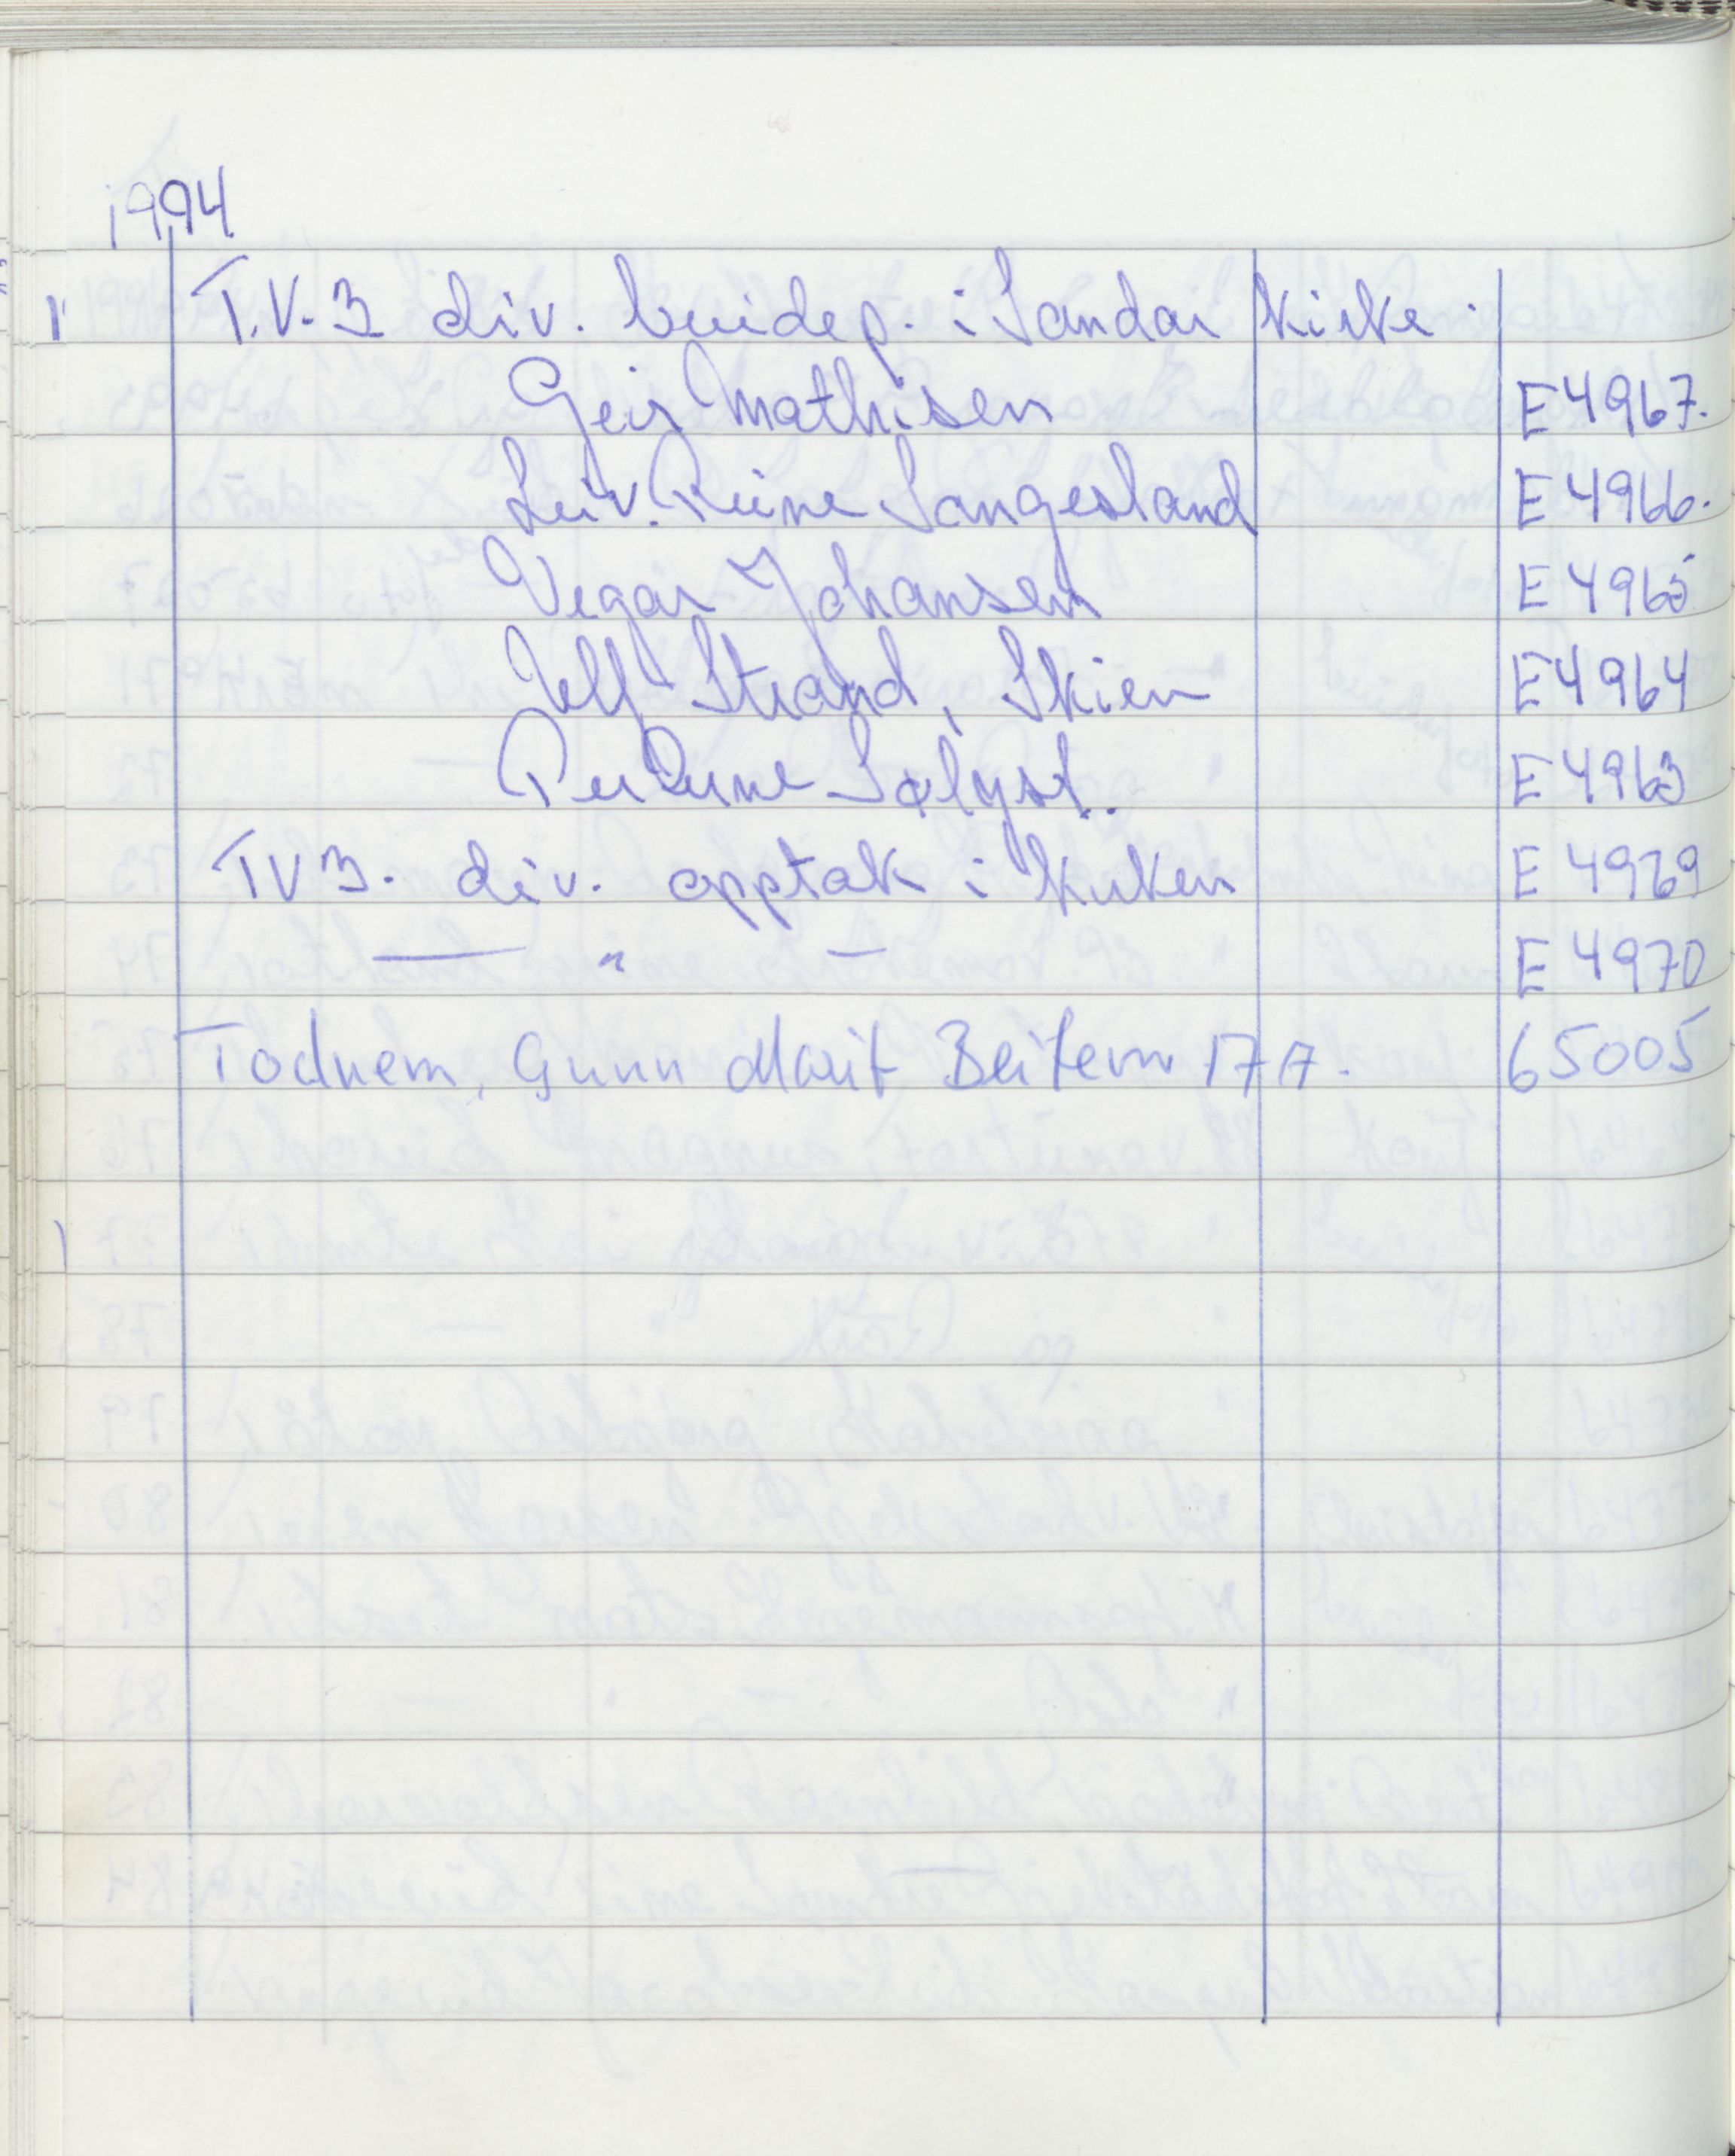 1994
T.V. 3 div. brudep. i Sandar kirke.
Geir Mathisen E 4967.
Leiv. Reine Sangesland E 4966.
Vegar Johansen E 4965
Ulf Strand, Skien E 4964
Per Rune Sølyst. E 4963
TV 3. div. opptak i kirken E 4969
— " — E 4970
Todnem, Gunn Marit Beitevn 17A. 65005